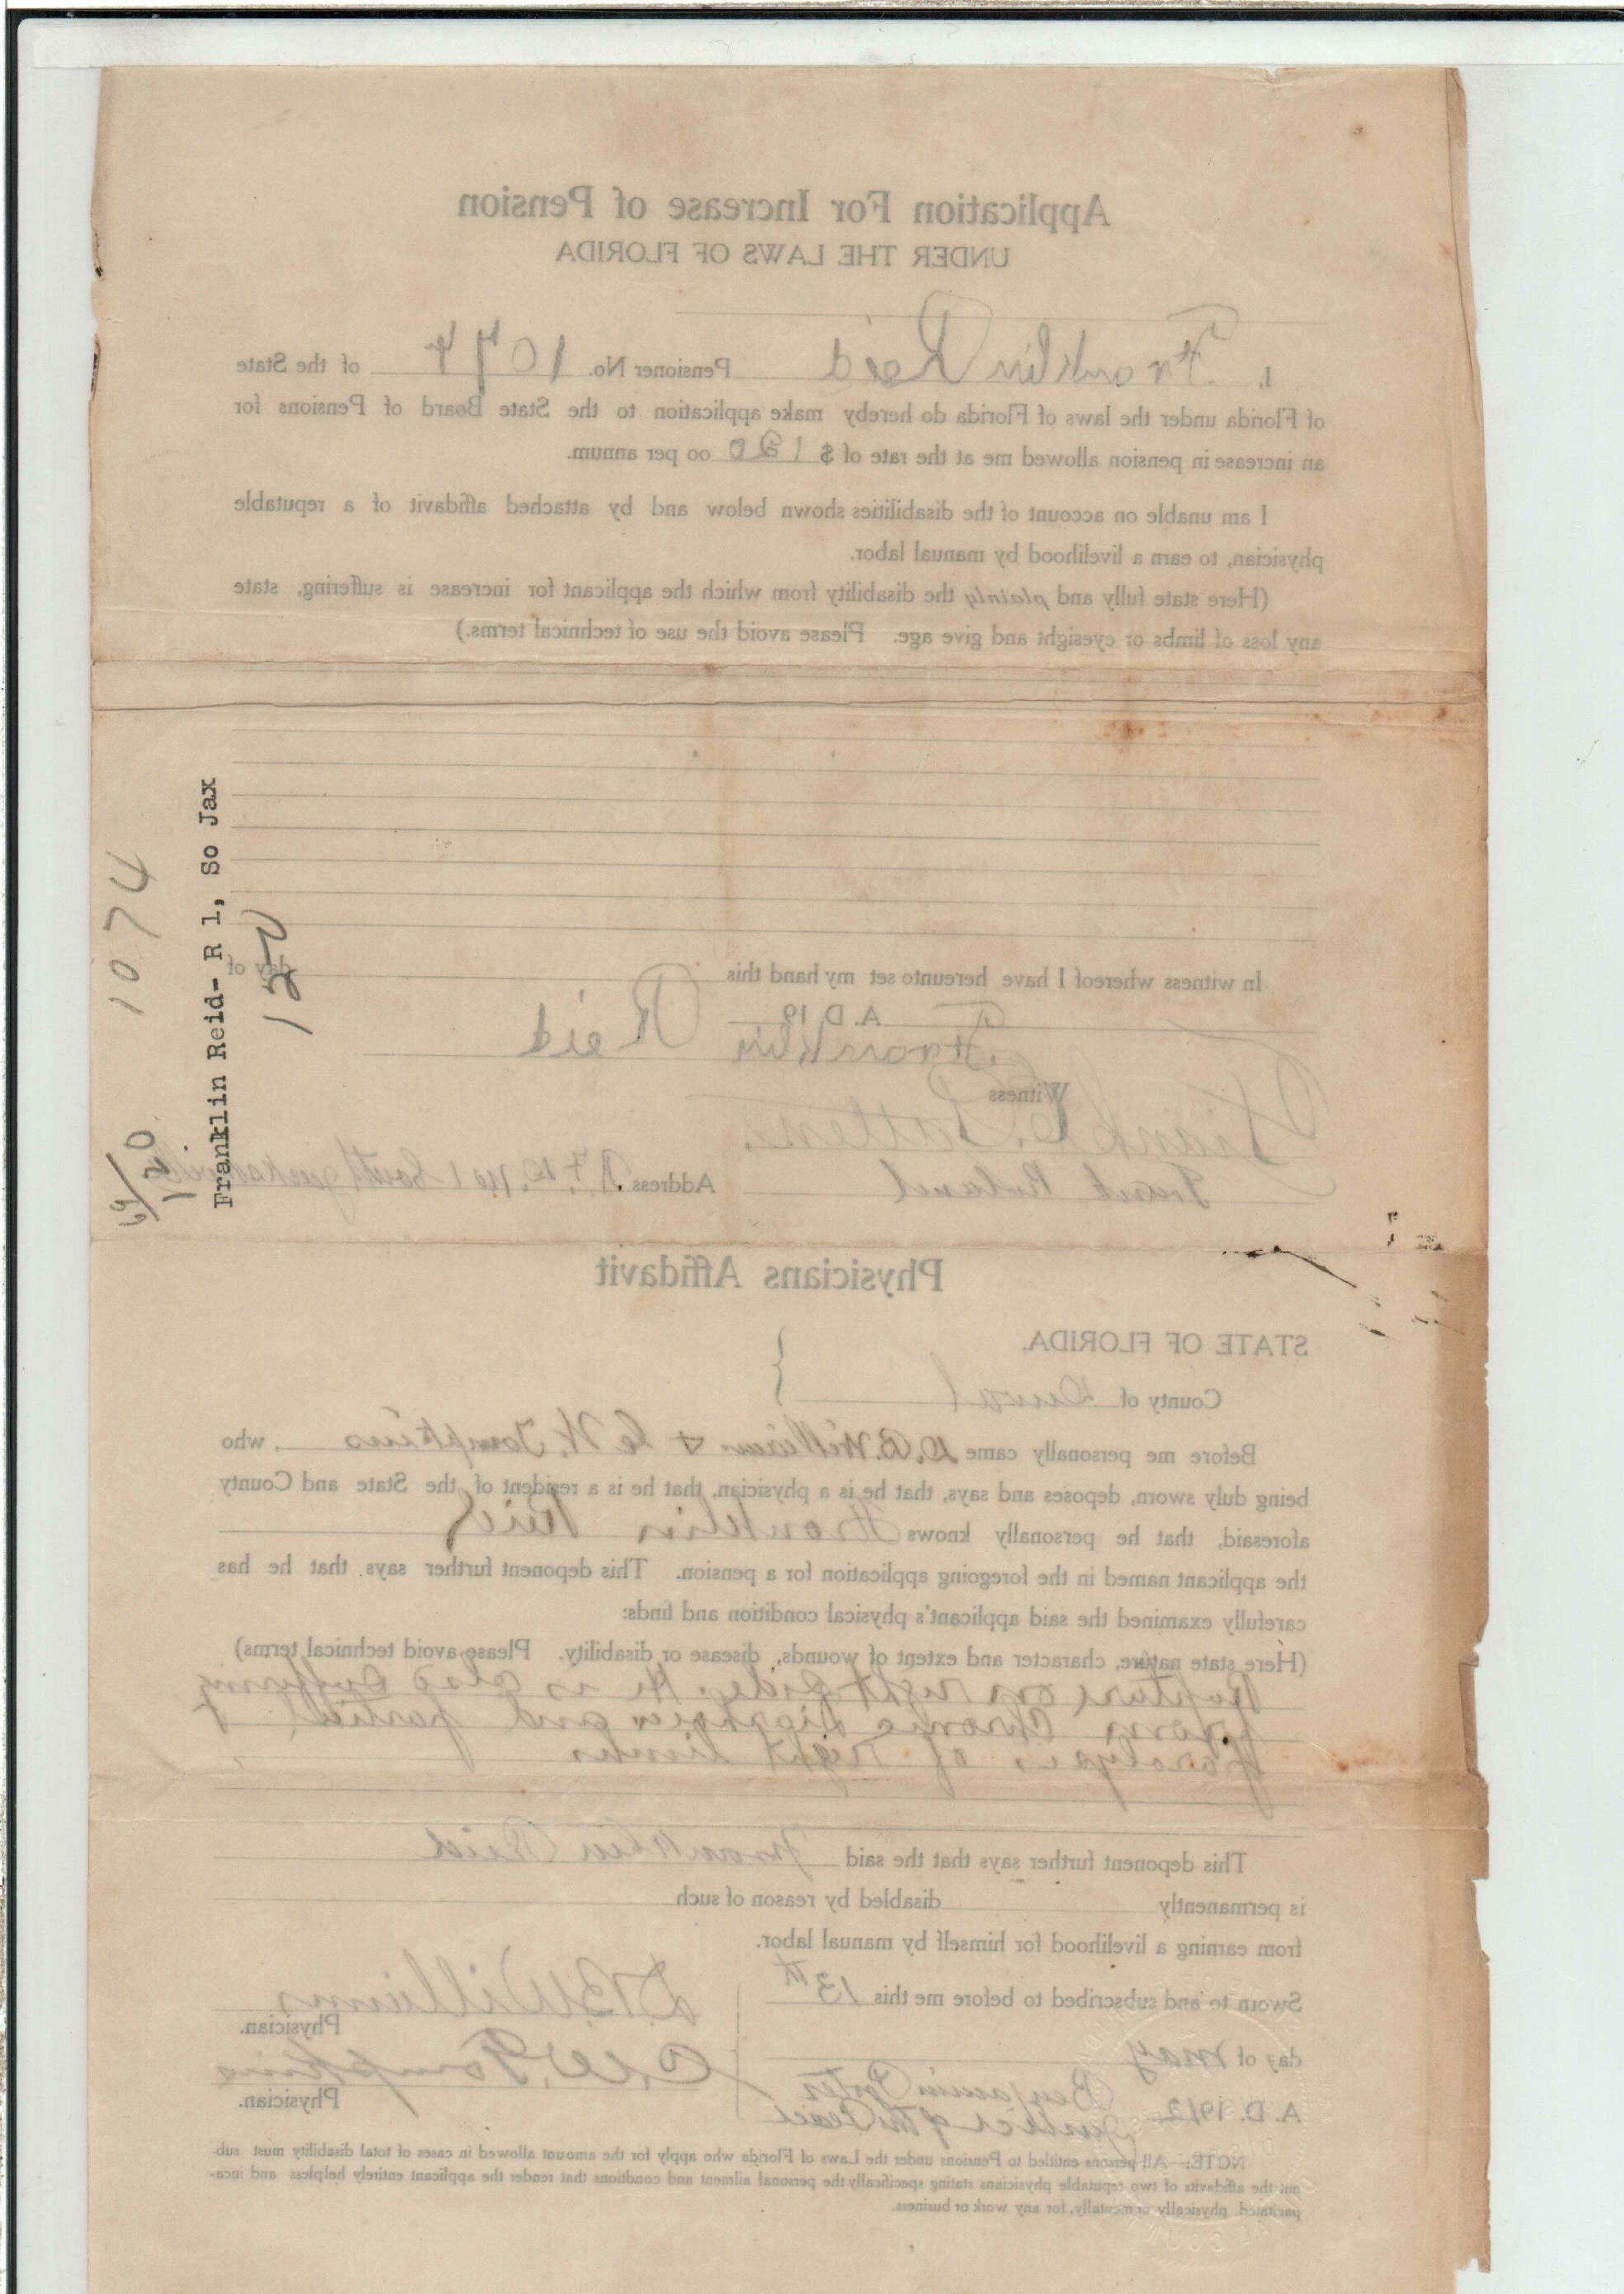 Application For Increase of Pension
UNDER THE LAWS OF FLORIDA
I, Franklin Reid Pensioner No. 1074 of the State
of Florida under the laws of Florida do hereby make application to the State Board of Pensions for
an increase in pension allowed me at the rate of $ 120 00 per annum.
I am unable on account of the disabilities shown below and by attached affidavit of a reputable
physician, to earn a livelihood by manual labor.
(Here state fully and plainly the disability from which the applicant for increase is suffering, state
any loss of limbs or eyesight and give age. Please avoid the use of technical terms.)
In witness whereof I have hereunto set my hand this day of
A. D. 19
Franklin Reid
Witness
Frank
Frank Address R.F.D. No 1 South Jacksonville
1074
Franklin Reid- R 1, So Jax
120
150
Physicians Affidavit
STATE OF FLORIDA,
County of Duval }
Before me personally came D.B. Williams & C. W. Tompkins, who
being duly sworn, deposes and says, that he is a physician, that he is a resident of the State and County
aforesaid, that he personally knows Franklin Reid
the applicant named in the foregoing application for a pension. This deponent further says that he has
carefully examined the said applicant's physical condition and finds:
(Here state nature, character and extent of wounds, disease or disability. Please avoid technical terms)
Rupture on right side. He is also suffering
from chronic and partial
paralysis of right limbs
This deponent further says that the said Franklin Reid
is permanently disabled by reason of such
from earning a livelihood for himself by manual labor.
Sworn to and subscribed to before me this 13th
day of May
A. D. 1912
Benjamin Porter
Justice of the Peace
D B Williams
Physician.
C. W. Tompkins
Physician.
NOTE:—All persons entitled to Pensions under the Laws of Florida who apply for the amount allowed in cases of total disability must sub-
mit the affidavits of two reputable physicians stating specifically the personal ailment and conditions that render the applicant entirely helpless and inca-
pacitated physically or mentally, for any work or business.